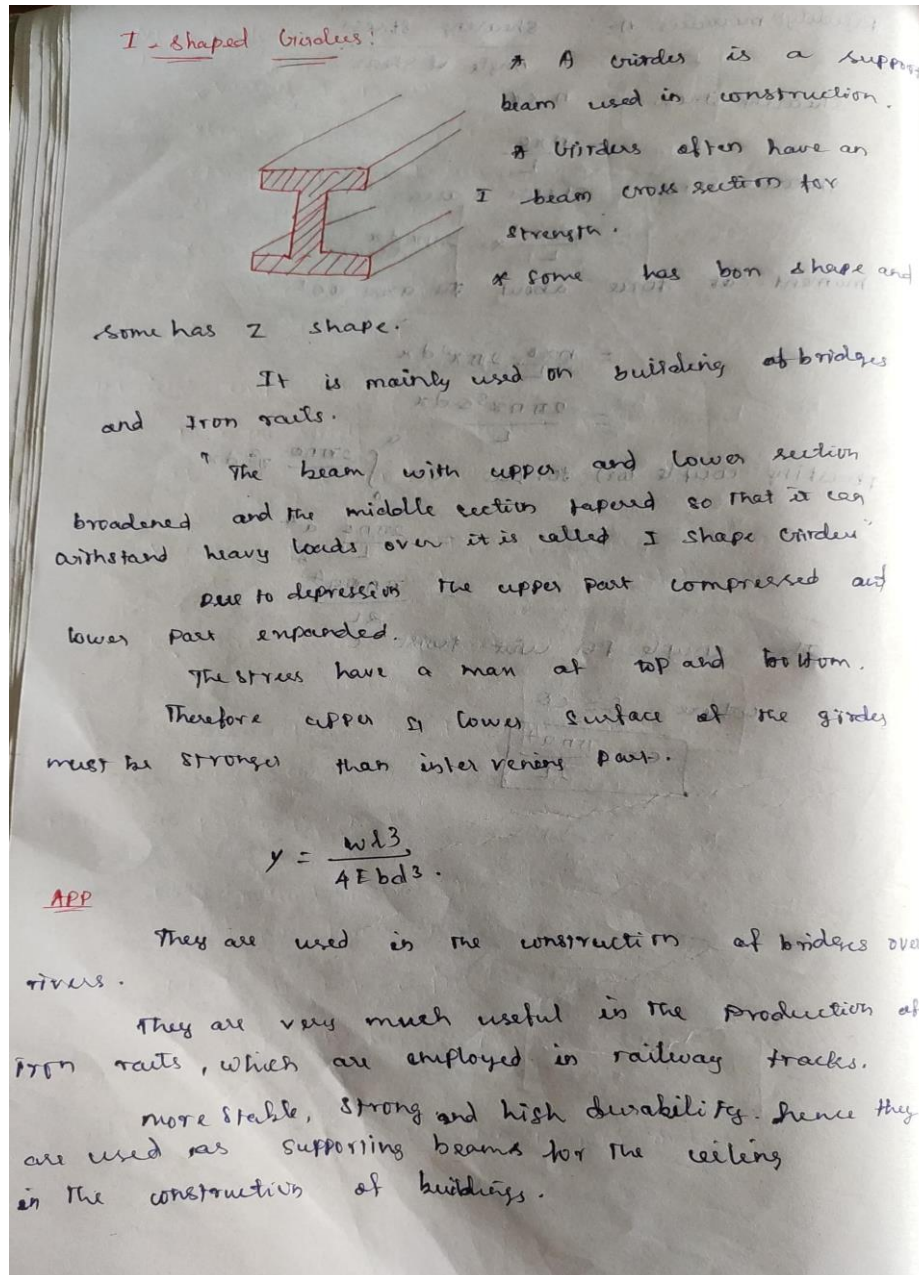 I - Shaped Girders:
* A Girder is a support
beam used in construction.
* Girders often have an
I beam cross section for
strength.
* Some has box shape and
some has Z shape.
It is mainly used on building of bridges
and Iron rails.
" The beam with upper and lower section
broadened and the middle section tapered so that it can
withstand heavy loads over it is called I shape Girder"
Due to depression the upper part compressed and
lower part expanded.
The stress have a max at top and bottom.
Therefore upper & lower surface of the girder
must be stronger than intervening part.
y = wl3 / 4Ebd3.
APP
They are used in the construction of bridges over
rivers.
They are very much useful in the production of
iron rails, which are employed in railway tracks.
more stable, strong and high durability. hence they
are used as supporting beams for the ceiling
in the construction of buildings.